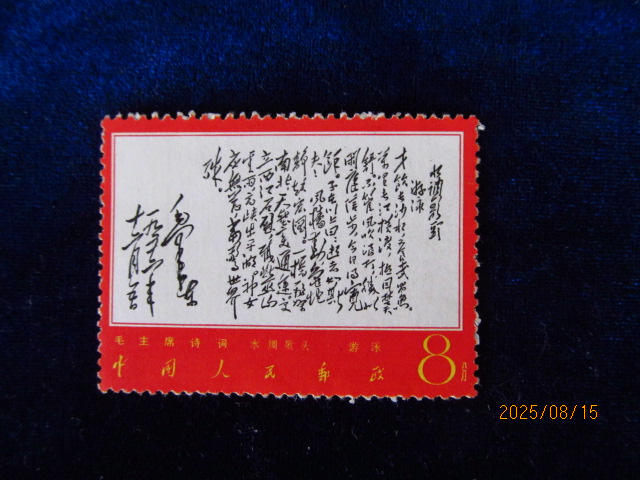 水调歌头
游泳
才饮长沙水又食武昌鱼
万里长江横渡极目楚天
舒不管风吹浪打胜似
闲庭信步今日得宽
余子在川上曰逝者如斯
夫风樯动龟蛇
静起宏图一桥飞架
南北天堑变通途更
立西江石壁截断巫山
云雨高峡出平湖神女
应无恙当惊世界
殊
毛泽东
一九五六年
十二月五日
毛主席诗词 水调歌头·游泳
中国人民郵政
8八分
2025/08/15